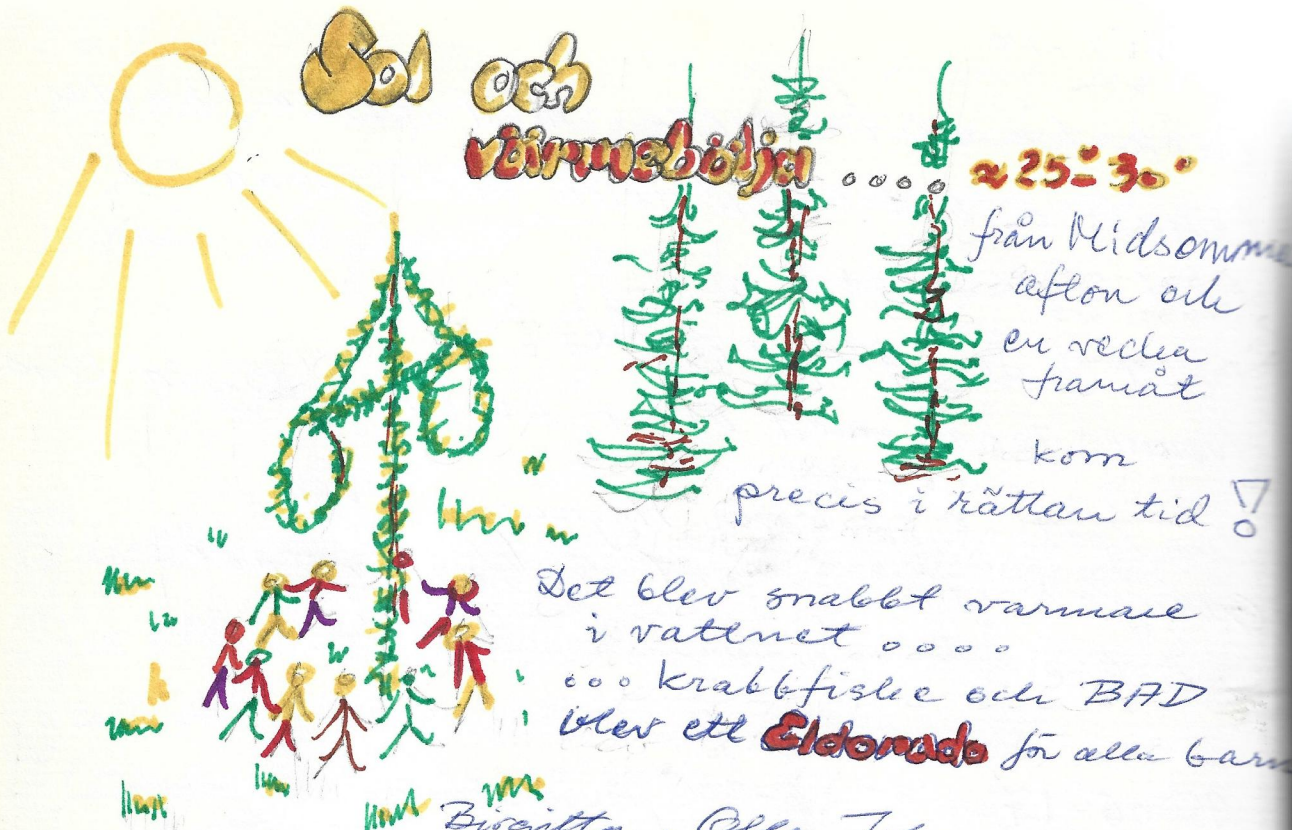 Sol och
värmebölja .... ≈ 25°-30°
från Midsomme
afton och
en vecka
framåt
kom
precis i rättan tid !
Det blev snabbt varmare
i vattnet ....
... krabbfiske och BAD
blev ett Eldorado för alla barn
Birgitta